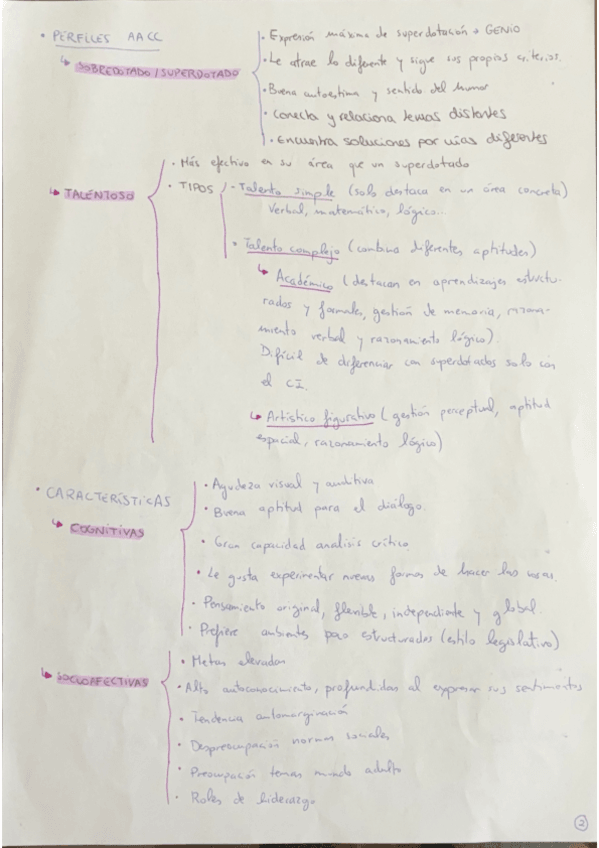 • PERFILES AACC
↳ SOBREDOTADO / SUPERDOTADO
• Expresión máxima de superdotación → GENIO
• Le atrae lo diferente y sigue sus propios criterios.
• Buena autoestima y sentido del humor
• Conecta y relaciona temas distantes
• Encuentra soluciones por vías diferentes
↳ TALENTOSO
• Más efectivo en su área que un superdotado
• TIPOS
- Talento simple (solo destaca en un área concreta)
Verbal, matemático, lógico...
• Talento complejo (combina diferentes aptitudes)
↳ Académico (destacan en aprendizajes estructu-
rados y formales, gestión de memoria, razona-
miento verbal y razonamiento lógico).
Difícil de diferenciar con superdotados solo con
el CI.
↳ Artístico figurativo (gestión perceptual, aptitud
espacial, razonamiento lógico)
• CARACTERÍSTICAS
↳ COGNITIVAS
• Agudeza visual y auditiva
• Buena aptitud para el diálogo.
• Gran capacidad analisis crítico.
• Le gusta experimentar nuevas formas de hacer las cosas.
• Pensamiento original, flexible, independiente y global.
• Prefiere ambientes poco estructurados (estilo legislativo)
↳ SOCIOAFECTIVAS
• Metas elevadas
• Alto autoconocimiento, profundidad al expresar sus sentimientos
• Tendencia automarginación
• Despreocupación normas sociales
• Preocupación temas mundo adulto
• Roles de liderazgo
2